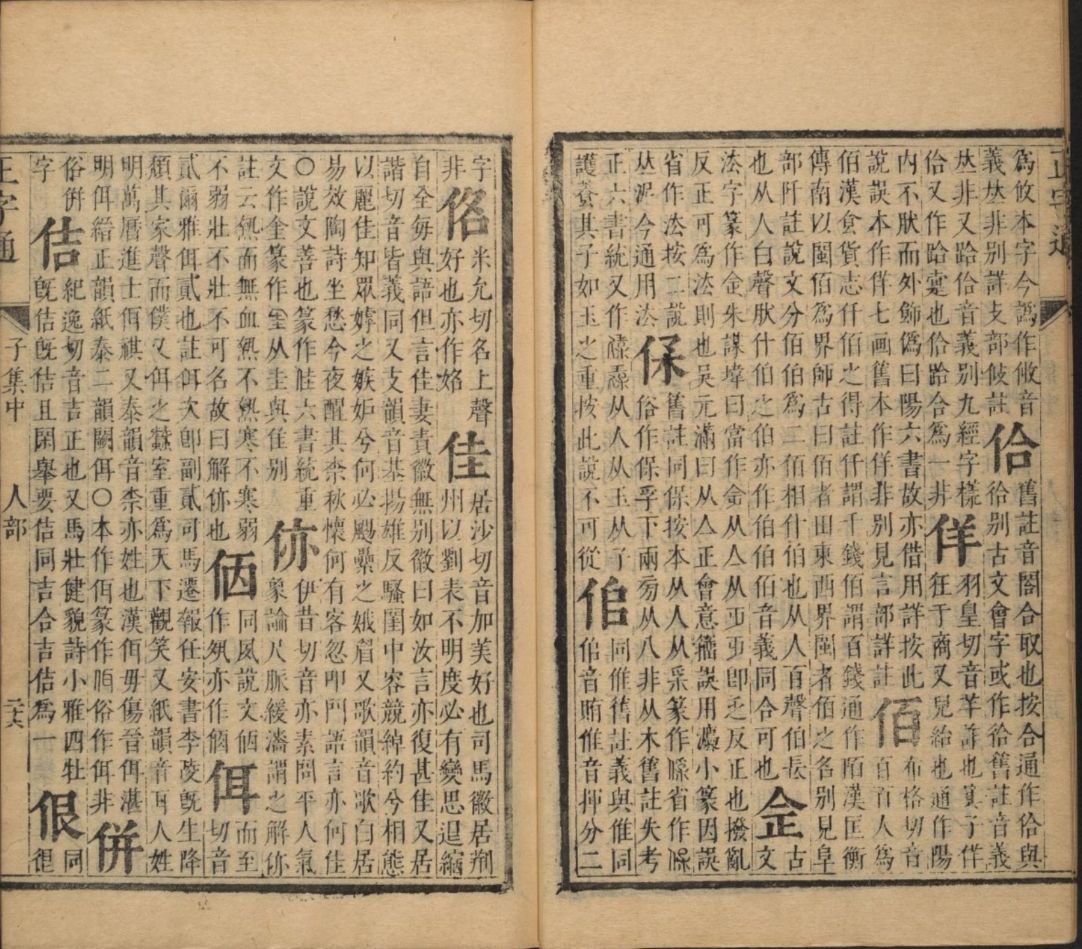 為攸本字今譌作攸音
義𠀤非別詳支部攸註
佮
舊註音閤合取也按合通作佮與
佮別古文會字或作佮舊註音義
𠀤非又跲佮音義別九經字樣
佯
羽皇切音羊詐也莫子佯
佮又作跲疐也佮跲合為一非
狂于商又兒紿也通作陽
內不猒而外飾偽曰陽六書故亦借用詳按此
說誤本作佯七画舊本作佯非別見言部詳註
佰
布格切音
百百人為
佰漢食貨志仟佰之得註仟謂千錢佰謂百錢通作陌漢匡衡
傳南以閩佰為界師古曰佰者田東西界閩者佰之名別見阜
部阡註說文分佰伯為二佰相什伯也从人百聲伯長
也从人白聲猒什伯之伯亦作佰伯佰音義同合可也
佱
文古
法字篆作金朱謀㙔曰當作佱从亼从㱏㱏卽乏反正也撥亂
反正可為法則也吳元滿曰从亼正會意䜟誤用灋小篆因誤
省作法按二說𠀤泥今通用法
保
舊註同保按本从人从𤓽篆作𠈃省作保
俗作保孚下兩旁从八非从木舊註失考
正六書統又作𠍣𠌛从人从玉从子
護養其子如玉之重按此說不可從
㑑
同惟舊註義與惟同
㑑音賄惟音揮分二
字
非
㑄
米允切名上聲
好也亦作姳
佳
居沙切音加美好也司馬徽居荆
州以劉表不明度必有變思退縮
自全毎與語但言佳妻責徽無別徽曰如汝言亦復甚佳又居
諧切音皆義同又支韻音基揚雄反騷閨中容競綽約兮相態
以麗佳知眾嫭之嫉妒兮何必颺纍之娥眉又歌韻音歌白居
易效陶詩坐愁今夜醒其柰秋懷何有客忽叩門語言亦何佳
○說文善也篆作佳六書統重
文作㑋篆作𡍮从圭與隹別
㑊
伊昔切音亦素問平人氣
象論尺脈緩濇謂之解㑊
註云熱而無血熱不熱寒不寒弱
不弱壯不壯不可名故曰解㑊也
㑉
同夙說文㑉
作夙亦作㑉
佴
而至
切音
貳爾雅佴貳也註佴次卽副貳可馬遷報任安書李陵旣生降
頹其家聲而僕又佴之蠶室重為天下觀笑又紙韻音耳人姓
明萬曆進士佴祺又泰韻音柰亦姓也漢佴毋傷晉佴湛
明佴紿正韻紙泰二韻闕佴○本作佴篆作佴俗作佴非
併
同
俗併
字
佶
紀逸切音吉正也又馬壯健貌詩小雅四牡
旣佶旣佶且閑舉要佶同吉合吉佶為一
佷
很
正字通
子集中
人部
二六
正字通